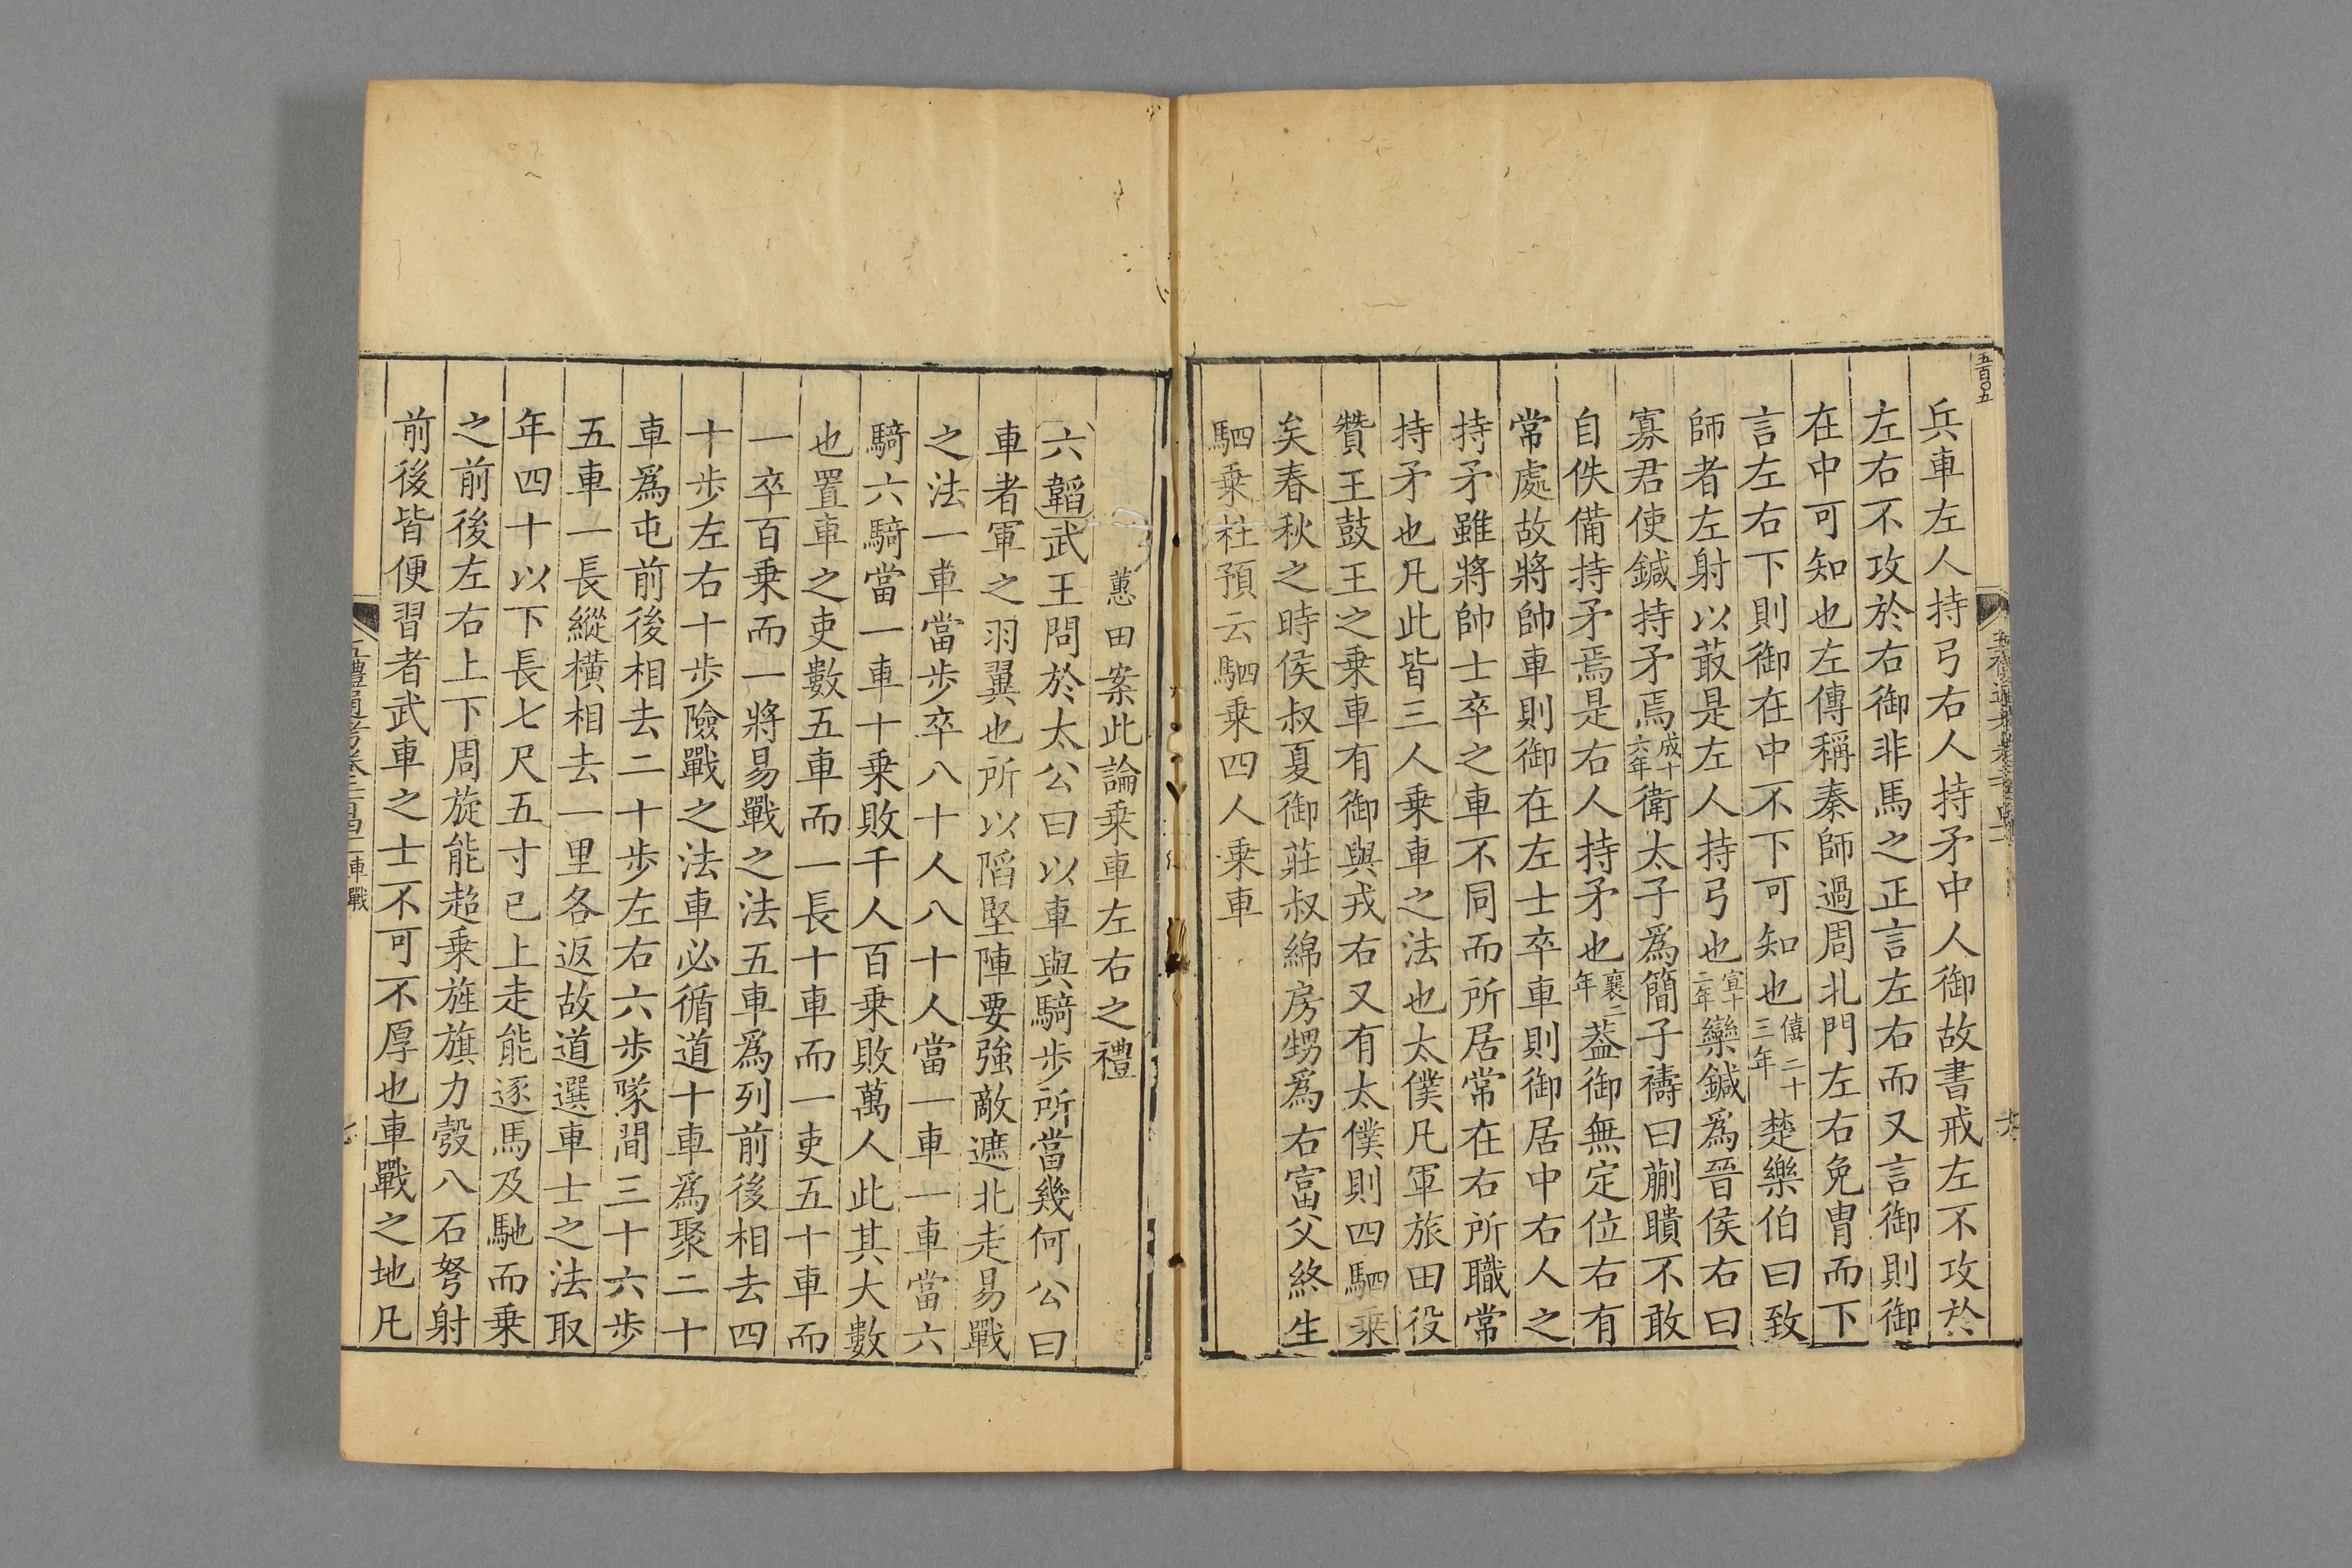 五百〇五
兵車左人持弓右人持矛中人御故書戒左不攻於
左右不攻於右御非馬之正言左右而又言御則御
在中可知也左傳稱秦師過周北門左右免胄而下
言左右下則御在中不下可知也僖二十三年楚樂伯曰致
師者左射以菆是左人持弓也宣十二年欒鍼爲晉侯右曰
寡君使鍼持矛焉成十六年衛太子爲簡子禱曰蒯聵不敢
自佚備持矛焉是右人持矛也襄二年葢御無定位右有
常處故將帥車則御在左士卒車則御居中右人之
持矛雖將帥士卒之車不同而所居常在右所職常
持矛也凡此皆三人乗車之法也太僕凡軍旅田役
贊王鼓王之乗車有御與戎右又有太僕則四駟乗
矣春秋之時侯叔夏御莊叔綿房甥爲右富父終生
駟乗杜預云駟乗四人乗車
蕙田案此論乗車左右之禮
六韜武王問於太公曰以車與騎歩所當幾何公曰
車者軍之羽翼也所以䧟堅陣要強敵遮北走易戰
之法一車當歩卒八十人八十人當一車一車當六
騎六騎當一車十乗敗千人百乗敗萬人此其大數
也置車之吏數五車而一長十車而一吏五十車而
一卒百乗而一將易戰之法五車爲列前後相去四
十歩左右十歩險戰之法車必循道十車爲聚二十
車爲屯前後相去二十歩左右六歩隊間三十六歩
五車一長縱横相去一里各返故道選車士之法取
年四十以下長七尺五寸已上走能逐馬及馳而乗
之前後左右上下周旋能超乗旌旗力彀八石弩射
前後皆便習者武車之士不可不厚也車戰之地凡
車戰